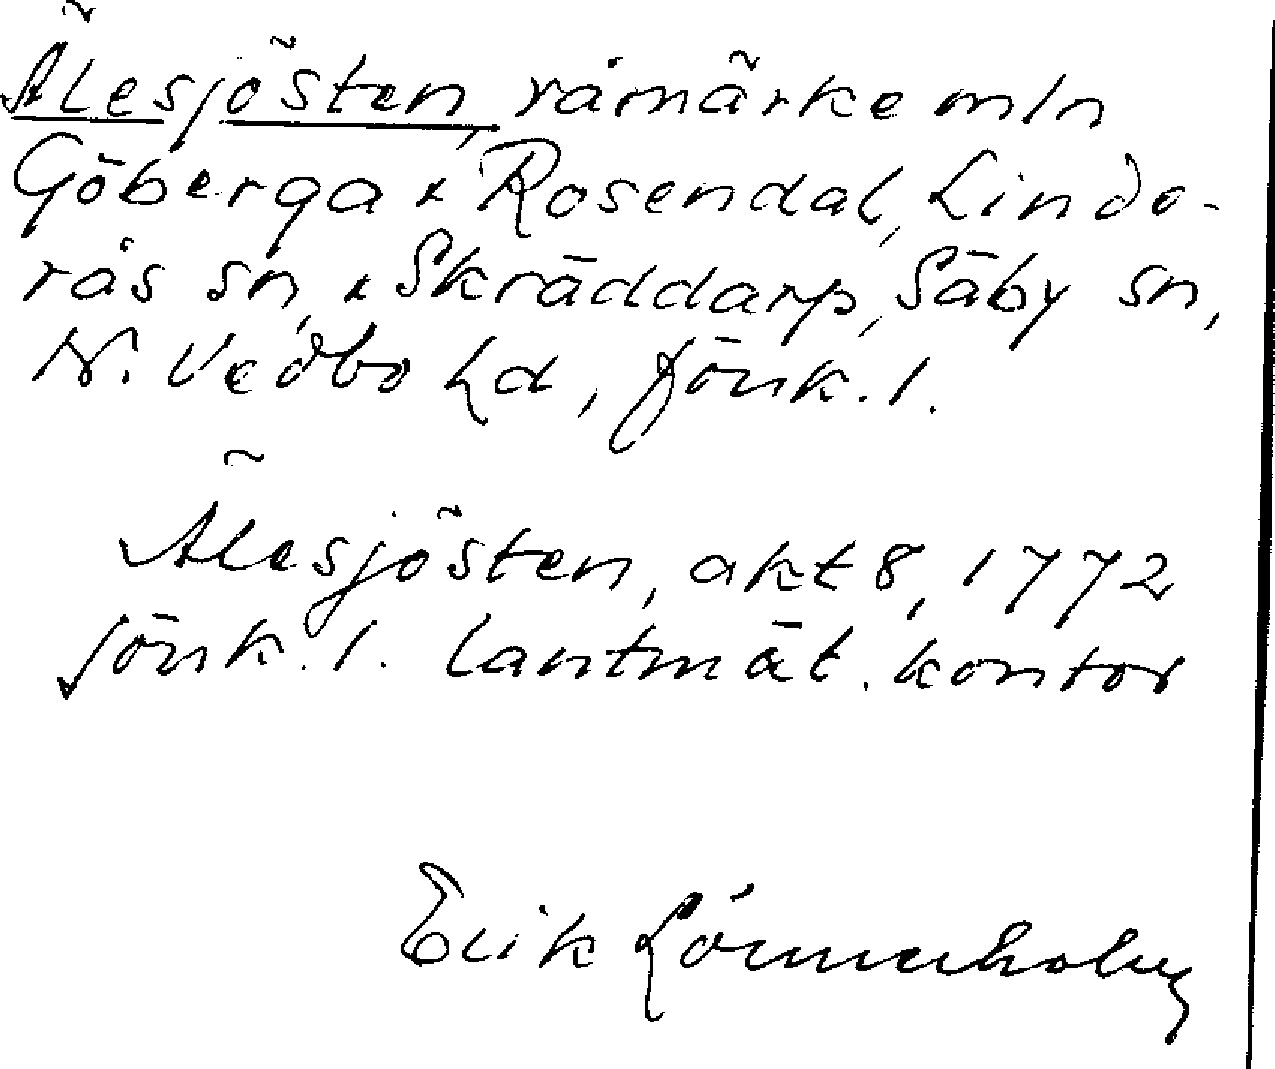 Älesjösten, råmärke mln
Göberga & Rosendal, Linde-
rås sn, & Skräddarp, Säby sn,
N. Vedbo hd, Jönk. l.
Älesjösten, akt 8, 1772
Jönk. l. lantmät. kontor
Erik Lönnerholm